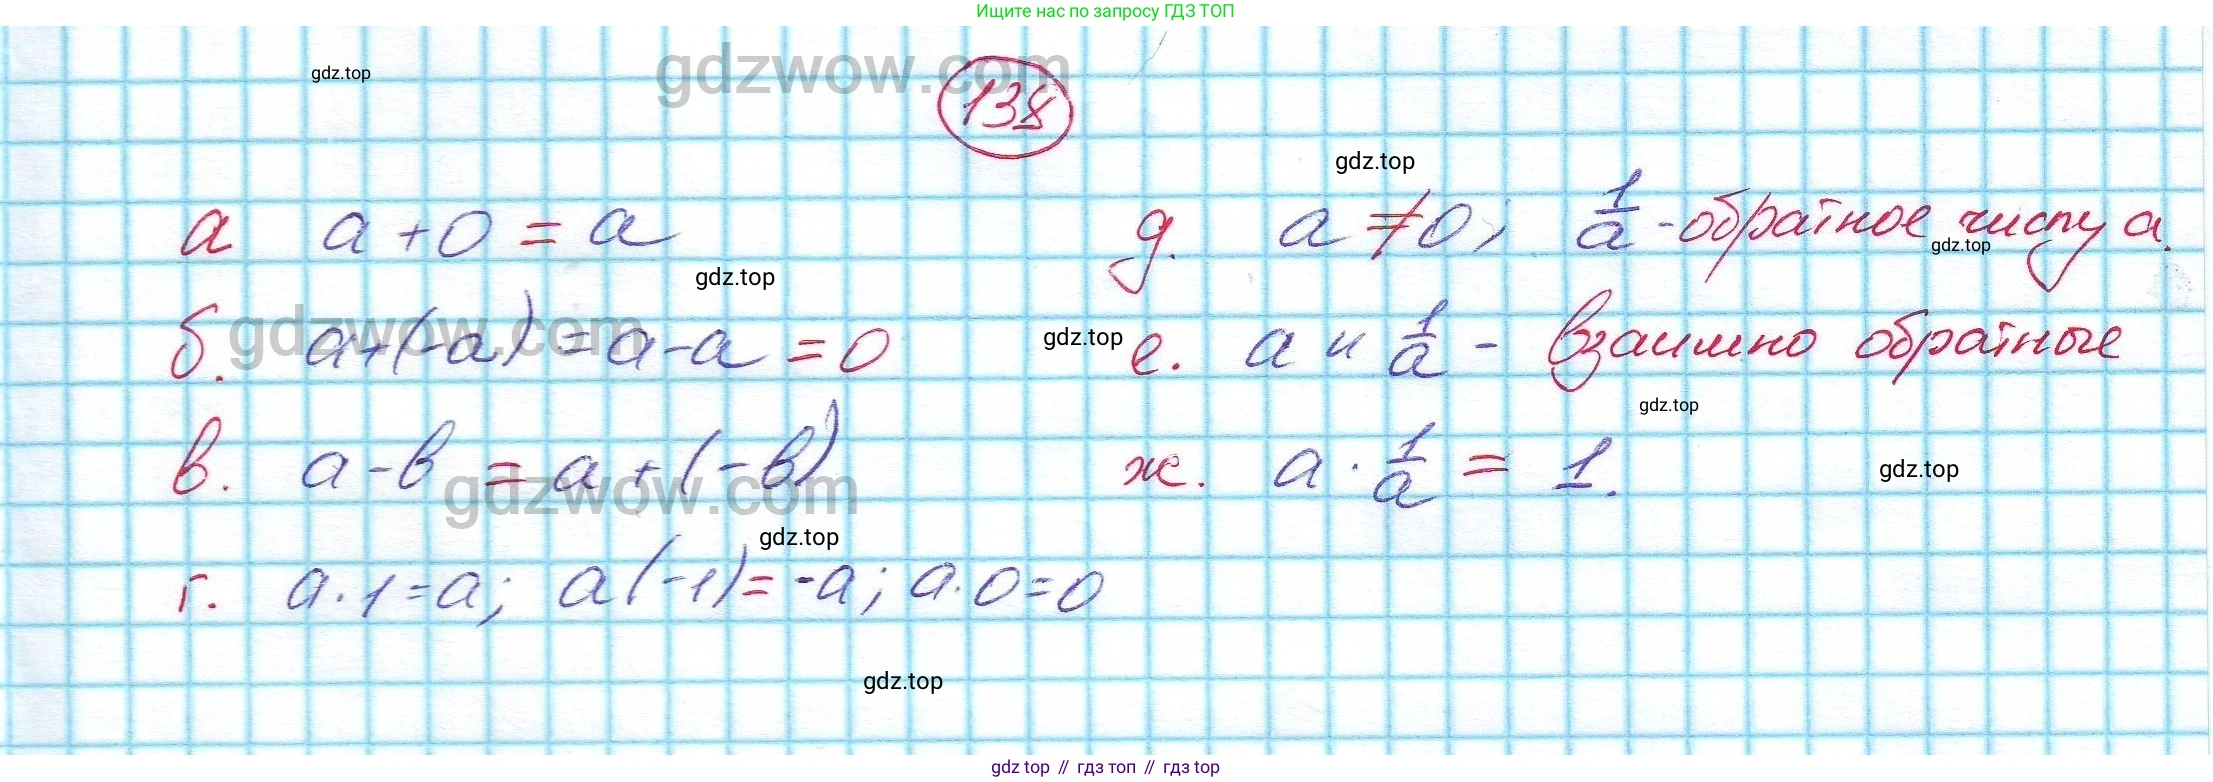 Ищите нас по запросу ГДЗ ТОП
gdzwow.com
gdz.top
138
gdz.top
а a + 0 = a
gdz.top
б. a + (-a) = a - a = 0
gdzwow.com
в. a - b = a + (-b)
gdzwow.com
gdz.top
г. a · 1 = a; a (-1) = -a; a · 0 = 0
д. a ≠ 0; 1/a - обратное числу a.
gdz.top
gdz.top
е. a и 1/a - взаимно обратные
gdz.top
ж. a · 1/a = 1.
gdz.top
gdz.top
gdz top // гдз топ // gdz top